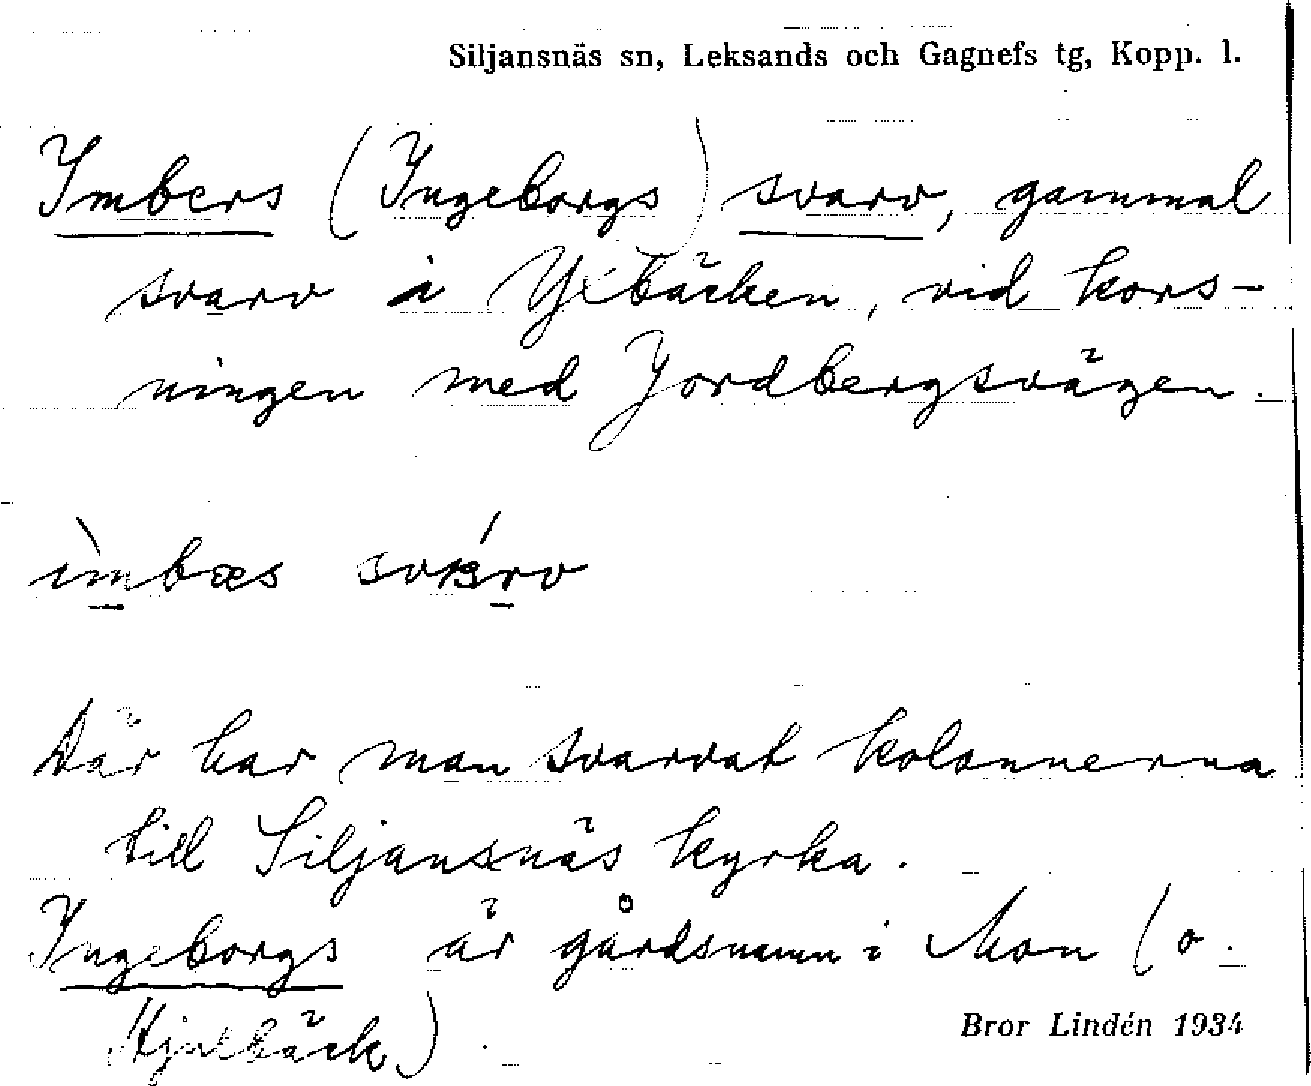 Siljansnäs sn, Leksands och Gagnefs tg, Kopp. l.
Imbers (Ingeborgs) svarv, gammal
svarv i Ylbäcken, vid kors-
ningen med Jordbergsvägen.
ìmbæs svárv
Där har man svarvat kolonnerna
till Siljansnäs kyrka.
Ingeborgs är gårdsnamn i Mon (o.
Hjulbäck).
Bror Lindén 1934